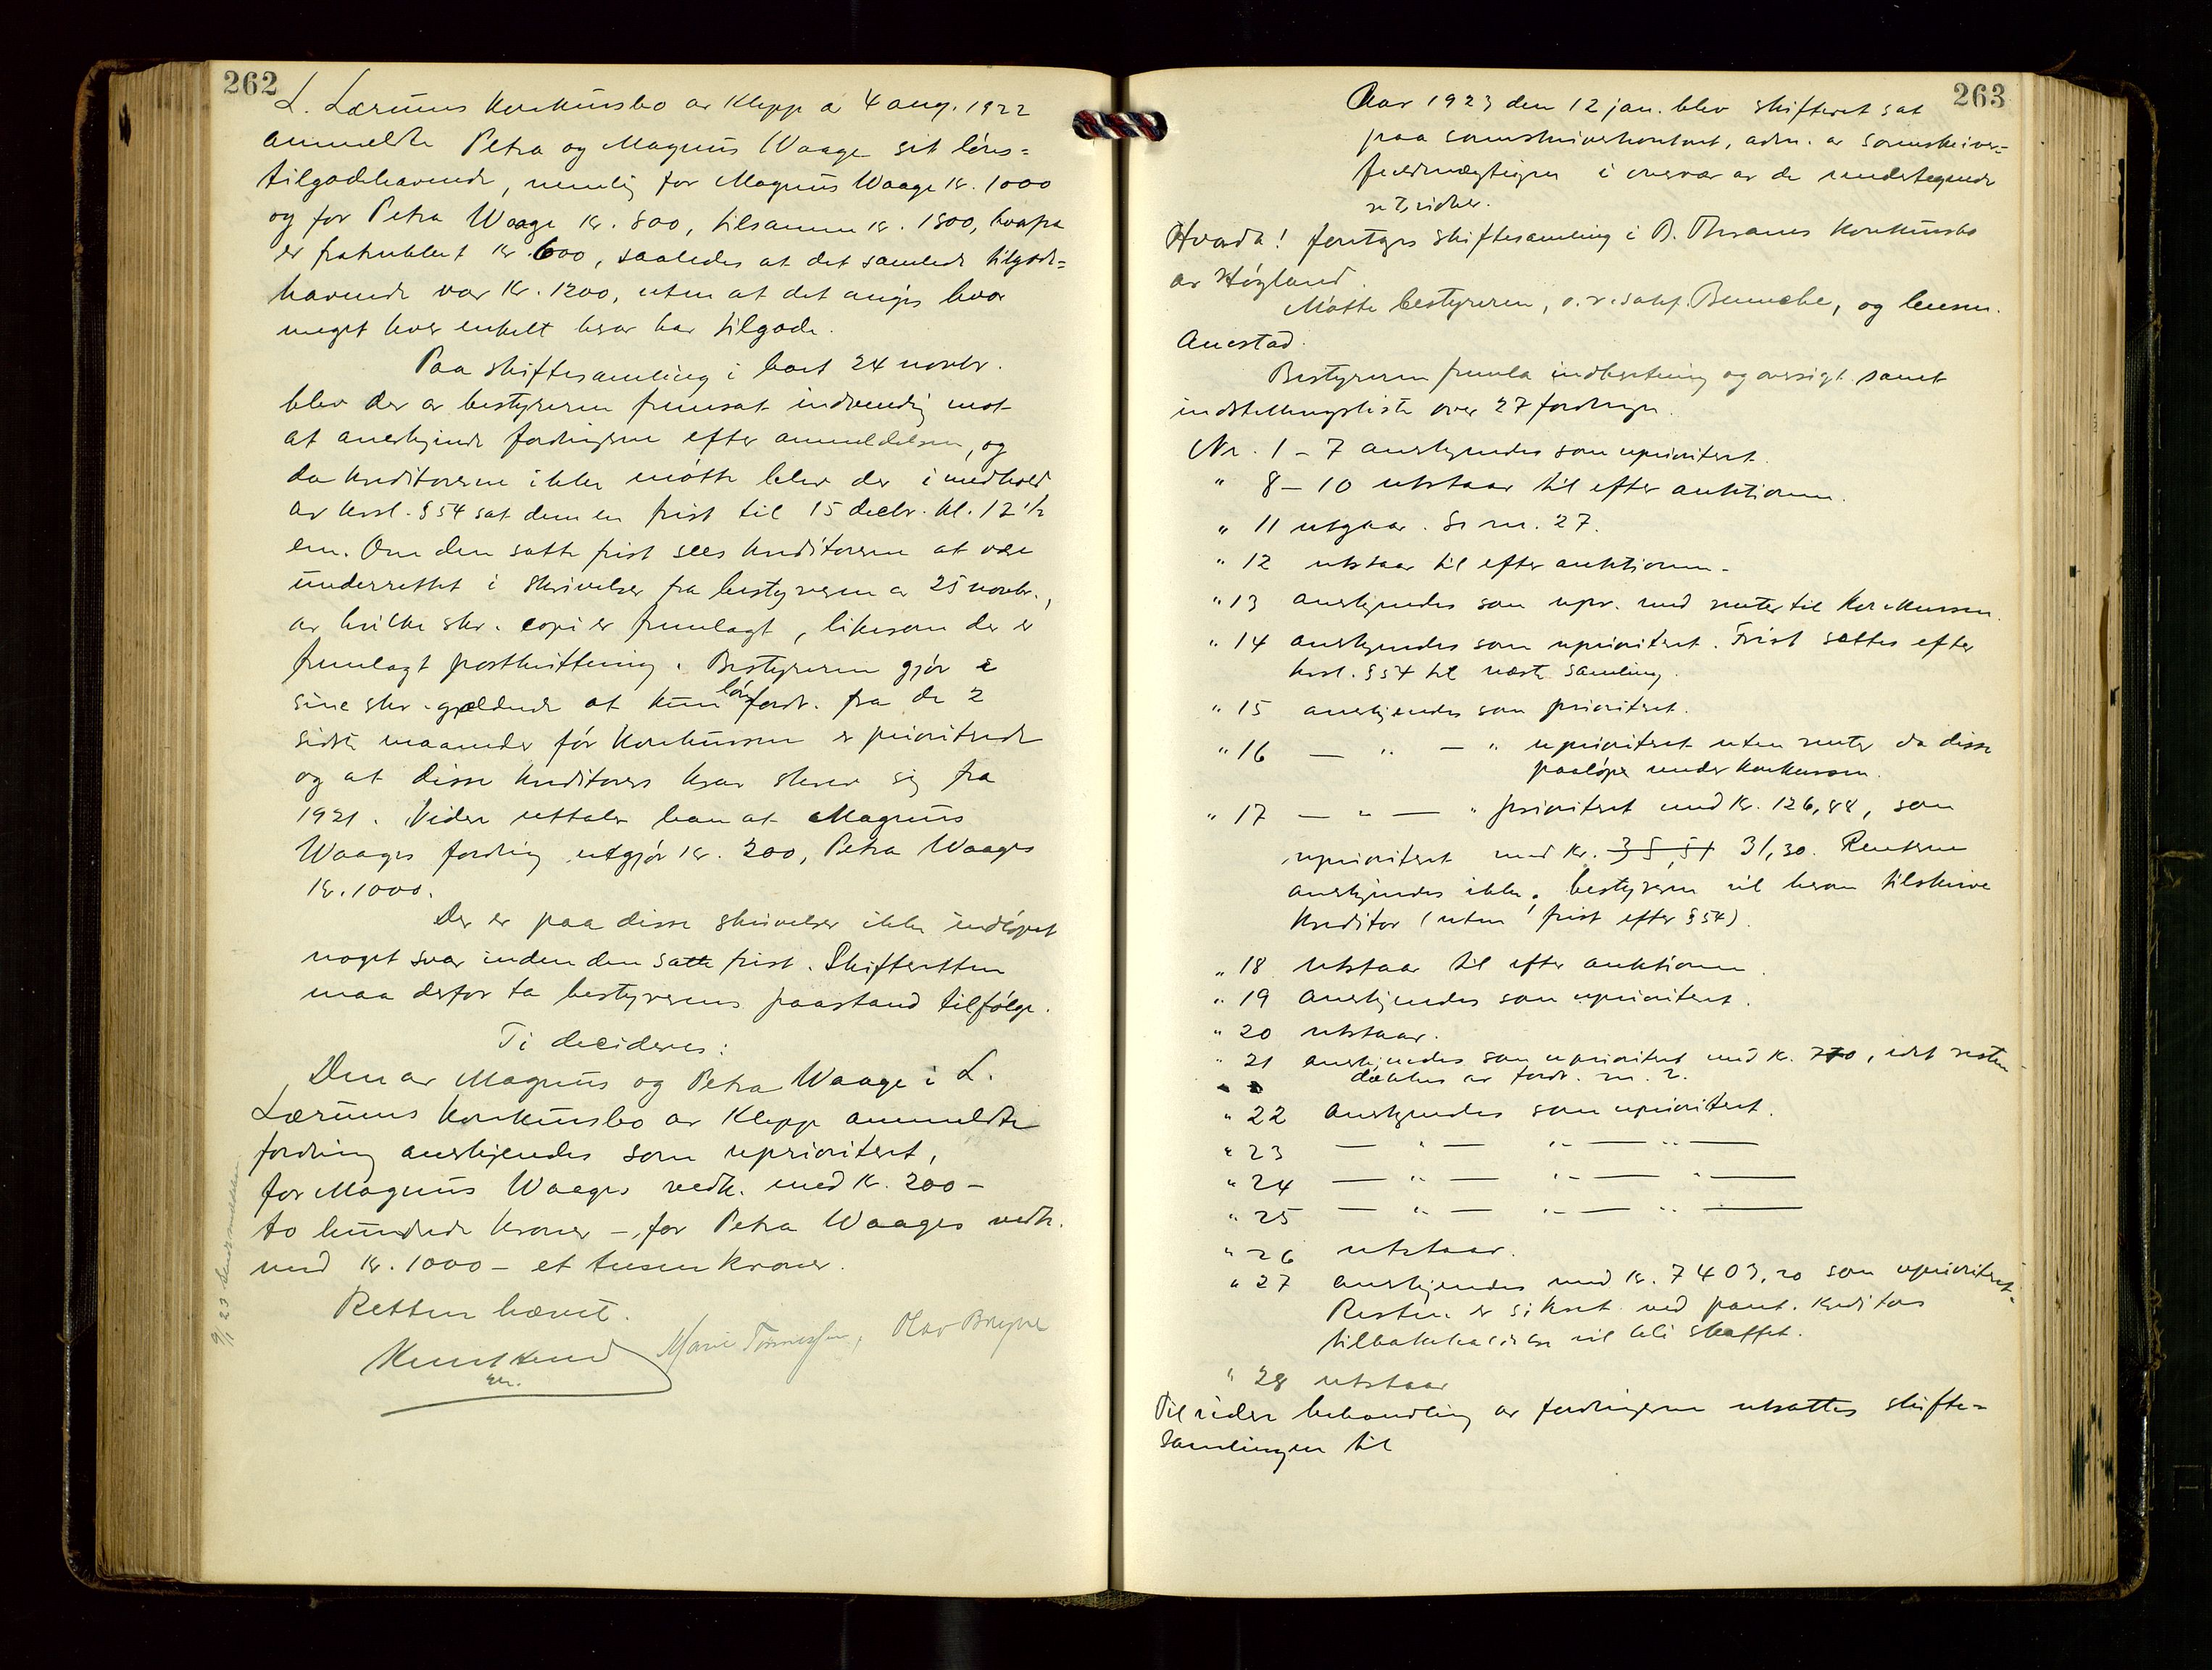 262
L. Lærums konkursbo av Klepp a 4 aug. 1922
anmeldte Petra og Magnus Waage sit løns=
tilgodehavende, nemlig for Magnus Waage kr. 1000
og for Petra Waage kr. 800, tilsammen kr. 1800, hvorpaa
er fratrukket kr. 600, saaledes at det samlede tilgode=
havende var kr. 1200, uten at det angis hvor
meget hver enkelt herav har tilgode.
Paa skiftesamling i boet 24 novbr.
blev der av bestyreren fremsat indvending mot
at anerkjende fordringerne efter anmeldelsen, og
da kreditorerne ikke møtte blev der i medhold
av kosl. § 54 sat dem en frist til 15 decbr. kl. 12 1/2
em. Om den satte frist sees kreditorerne at være
underrettet i skrivelser fra bestyreren av 25 novbr.,
av hvilke skr. copi er fremlagt, likesom der er
fremlagt postkvittering. Bestyreren gjør i
sine skr. gjeldende at kun lønsfordr. fra de 2
sidste maaneder før konkursen er prioriterede
og at disse kreditorers krav skrev sig fra
1921. Videre uttaler han at Magnus
Waages fordring utgjør kr. 200, Petra Waages
kr. 1000.
Der er paa disse skrivelser ikke indløpet
noget svar inden den satte frist. Skifteretten
maa derfor ta bestyrerens paastand tilfølge.
Ti decideres:
Den av Magnus og Petra Waage i L.
Lærums konkursbo av Klepp anmeldte
fordring anerkjendes som uprioritert,
for Magnus Waages vedk. med kr. 200 –
to hundrede kroner –, for Petra Waages vedk.
med kr. 1000 – et tusen kroner.
Retten hævet.
Marie Tønnessen, Olav Bryne
9/1 23
263
Aar 1923 den 12 jan. blev skifteret sat
paa sorenskriverkontoret, adm. av sorenskriver=
fuldmægtigen i overvær av de undertegnede
retsvidner.
Hvorda! foretoges skiftesamling i B. Thranes konkursbo
av Høgland.
Møtte bestyreren, o.r.sakf. Bennche, og lensm.
Auestad.
Bestyreren fremla indberetning og oversigt samt
indstillingsliste over 27 fordringer.
Nr. 1 – 7 anerkjendes som uprioritert.
" 8 – 10 utstaar til efter auktionen.
" 11 utgaar. Se nr. 27.
" 12 utstaar til efter auktionen.
" 13 anerkjendes som upr. med renter til konkursen.
" 14 anerkjendes som uprioritert. Frist sættes efter
kosl. § 54 til næste samling.
" 15 anerkjendes som prioritert.
" 16 — " — " uprioritert uten renter da disse
paaløper under konkursen.
" 17 — " — " prioritert med kr. 126,88, som
uprioritert med kr. 35,51 31,30. Renterne
anerkjendes ikke; bestyreren vil herom tilskrive
kreditor (uten frist efter § 54).
" 18 utstaar til efter auktionen.
" 19 anerkjendes som uprioritert.
" 20 utstaar.
" 21 anerkjendes som uprioritert med kr. 770, idet resten
dækkes av fordr. nr. 2.
" 22 anerkjendes som uprioritert.
" 23 — " — " — " —
" 24 — " — " — " —
" 25 — " — " — " —
" 26 utstaar.
" 27 anerkjendes med kr. 7403,20 som uprioritert.
Resten er sikret ved pant. Kreditors
vil bli skaffet.
" 28 utstaar
Til videre behandling av fordringerne utsattes skifte=
samlingen til